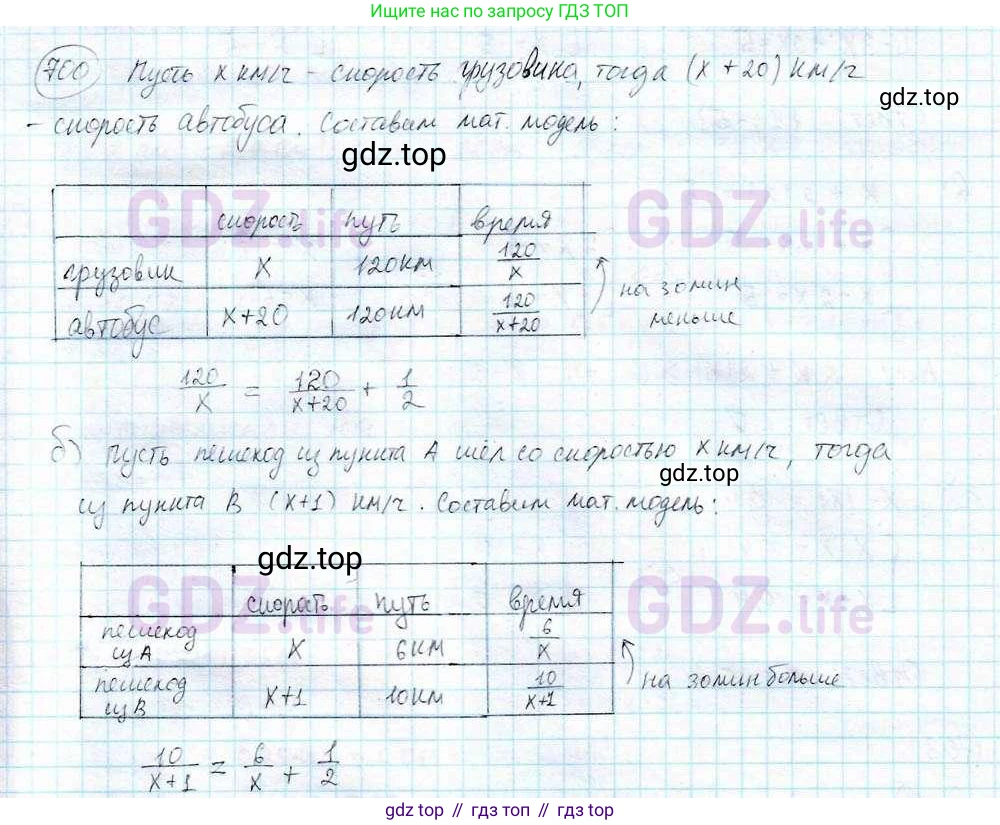 Ищите нас по запросу ГДЗ ТОП
700 Пусть x км/ч - скорость грузовика, тогда (x + 20) км/ч
gdz.top
- скорость автобуса. Составим мат. модель:
gdz.top
GDZ.life GDZ.life
скорость путь время
грузовик x 120км 120/x
на 30мин
автобус x+20 120км 120/x+20
меньше
120/x = 120/x+20 + 1/2
б) Пусть пешеход из пункта А шёл со скоростью x км/ч, тогда
gdz.top
из пункта В (x+1) км/ч. Составим мат. модель:
gdz.top
GDZ.life GDZ.life
скорость путь время
пешеход из А x 6км 6/x
на 30мин больше
пешеход из В x+1 10км 10/x+1
10/x+1 = 6/x + 1/2
gdz top // гдз топ // gdz.top